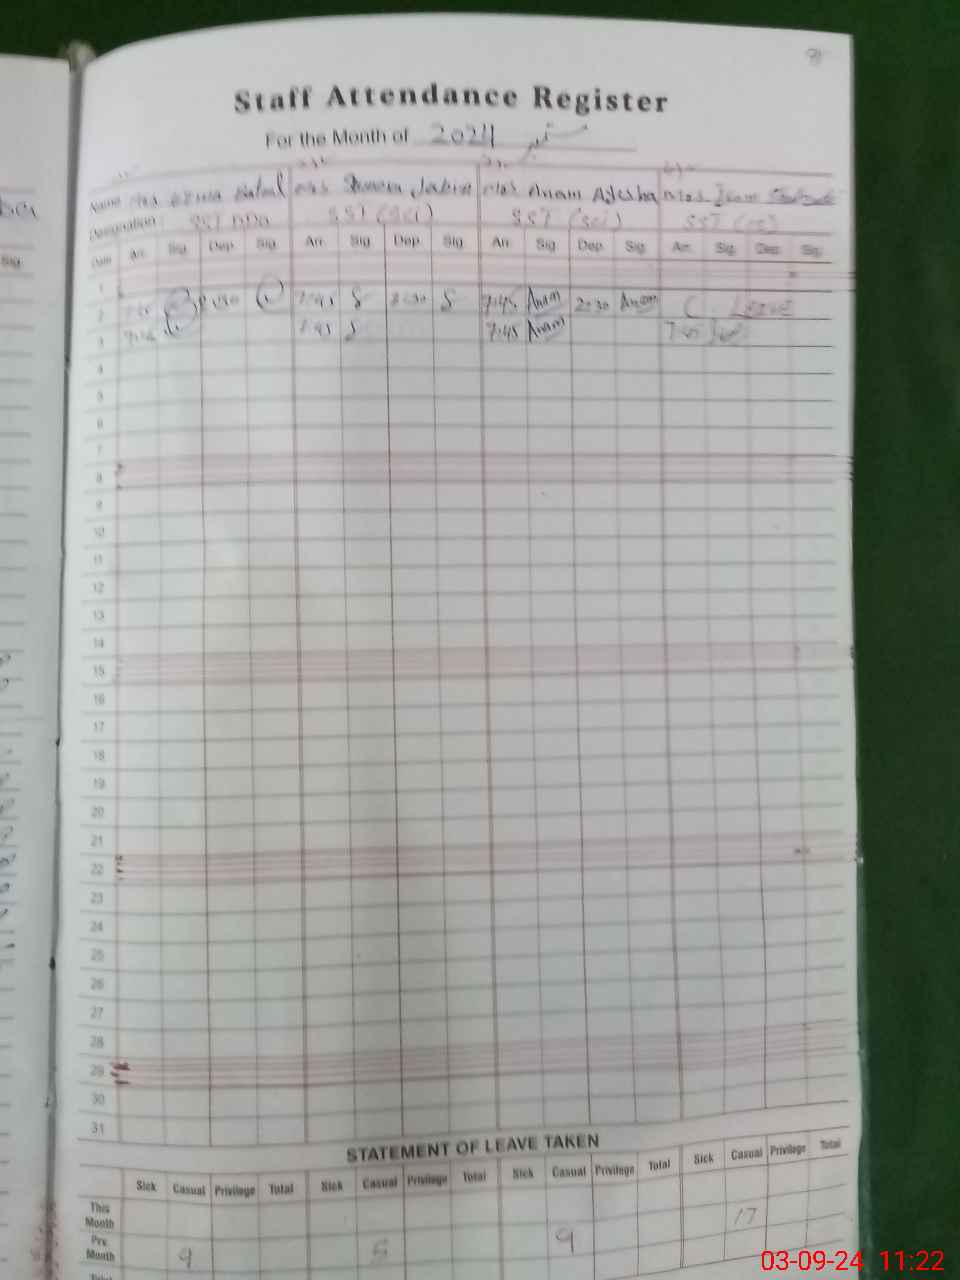 Staff Attendance Register
For the Month of 2024 ستمبر
Name Mrs Uzma Batool Mrs Jabin Mrs Anam Ayesha Mrs Iram
Designation SST SST (Sci) SST (Sci) SST
Date Arr. Sig Dep. Sig. Arr. Sig Dep. Sig. Arr. Sig Dep. Sig. Arr. Sig. Dep. Sig.
1
2 7:45 S 2:30 S 7:45 Anam 2:30 Anam C. Leave
3 7:45 S 7:45 Anam 7:45
4
5
6
7
8
9
10
11
12
13
14
15
16
17
18
19
20
21
22
23
24
25
26
27
28
29
30
31
STATEMENT OF LEAVE TAKEN
Sick Casual Privilege Total Sick Casual Privilege Total Sick Casual Privilege Total Sick Casual Privilege Total
This Month 17
Pre. Month 9 5 9
Total
Sig.
03-09-24 11:22